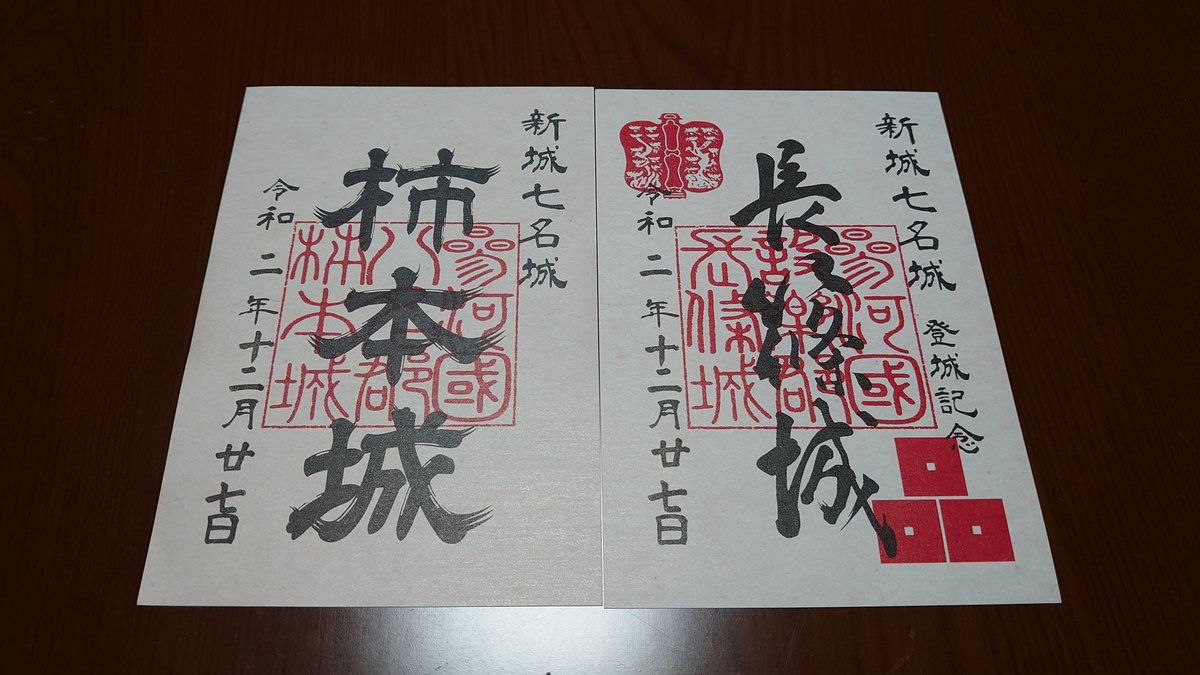 新城七名城
柿本城
令和二年十二月廿七日
參河國
柿本城
新城七名城
登城記念
長篠城
令和二年十二月廿七日
參河國
設樂郡